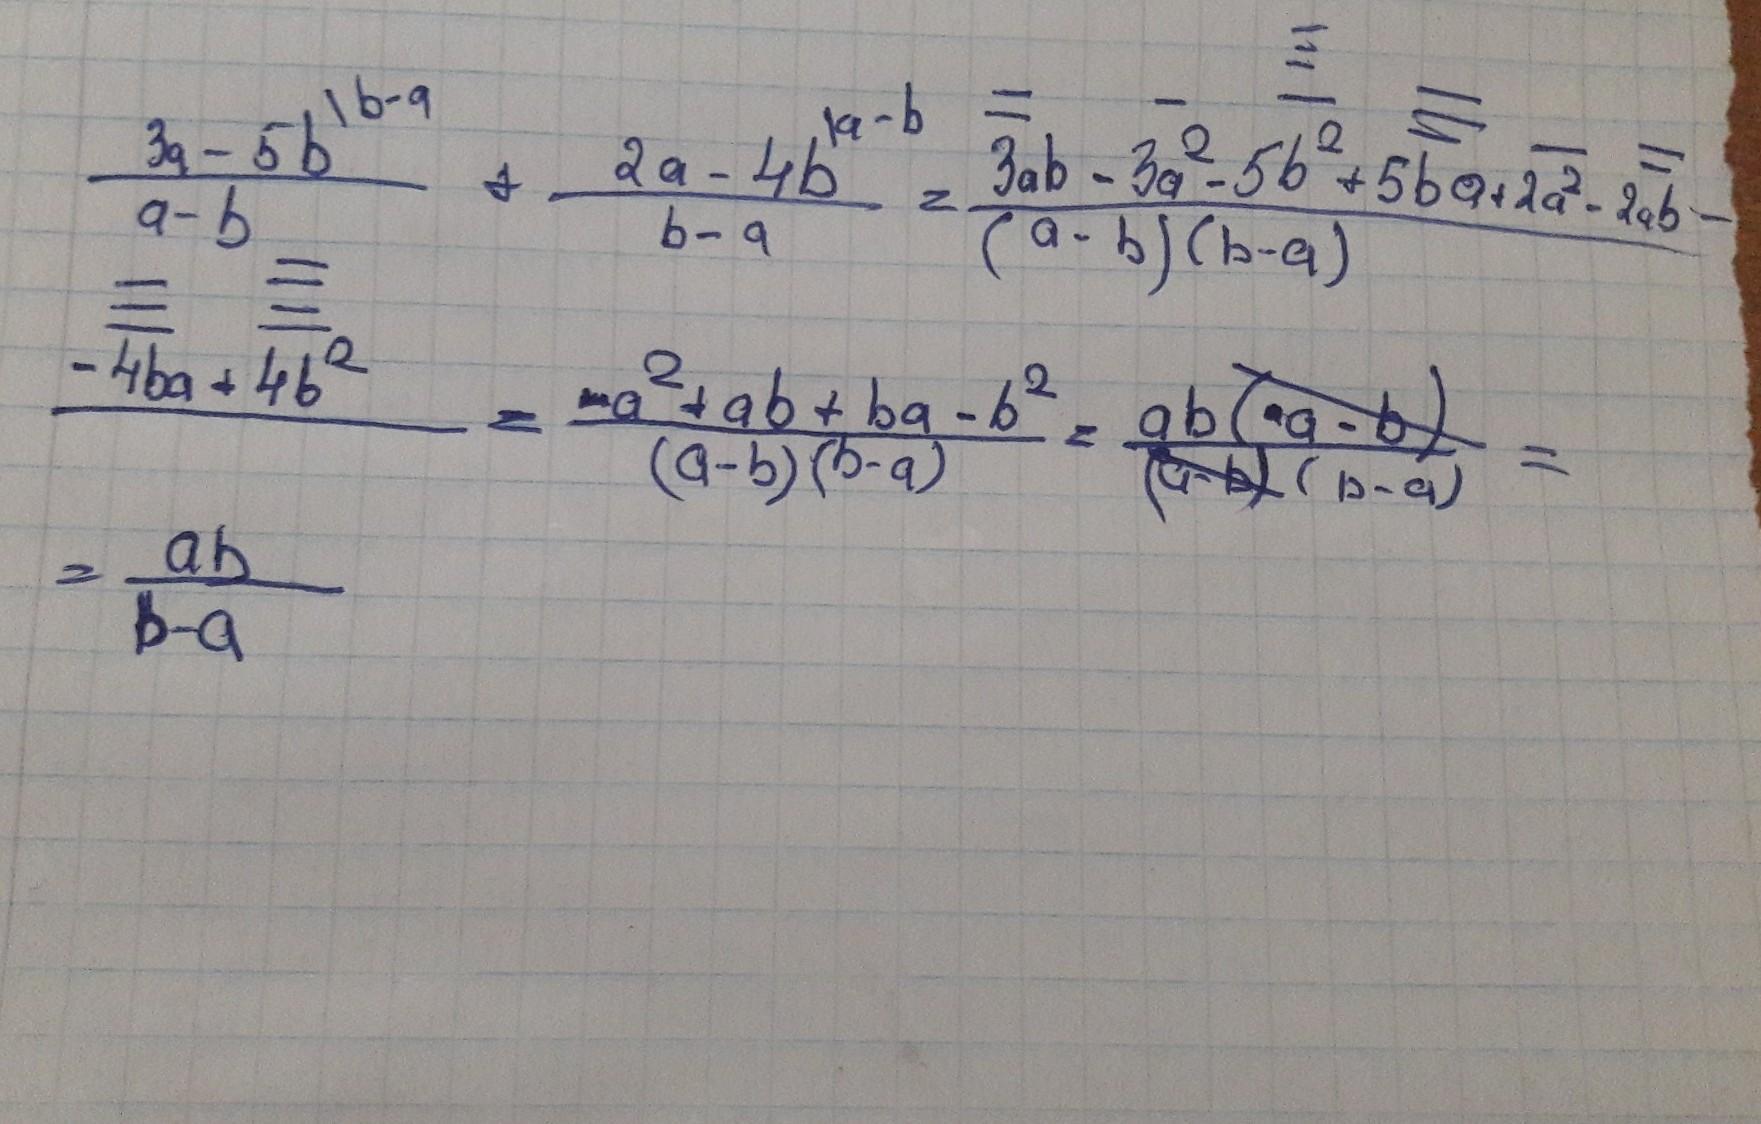 (3a - 5b)^{\b-a}/(a - b) + (2a - 4b)^{\a-b}/(b - a) = (3ab - 3a² - 5b² + 5ba + 2a² - 2ab -)/((a - b)(b - a))
(- 4ba + 4b²)/ = (-a² + ab + ba - b²)/((a-b)(b-a)) = ab(-a - b)/((a-b)(b-a)) =
= ab/(b-a)